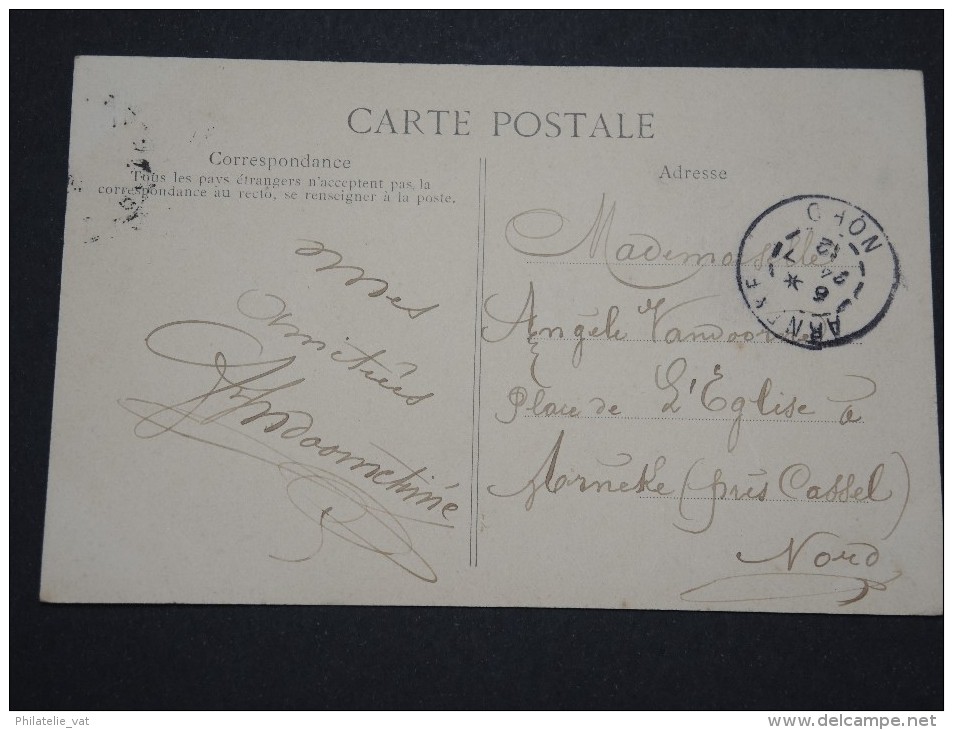 CARTE POSTALE
Correspondance
Tous les pays étrangers n'acceptent pas la
correspondance au recto, se renseigner à la poste.
Adresse
mes
amitiés
Mademoiselle
Angèle Vandoorne
Place de L'Eglise à
Arnèke (près Cassel)
Nord
ARNEKE
NORD
7
12
Philatelie_vat
www.delcampe.net